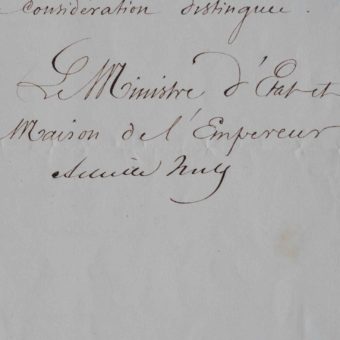 considération distinguée.
Le Ministre d'Etat et
Maison de l'Empereur
Achille Fould